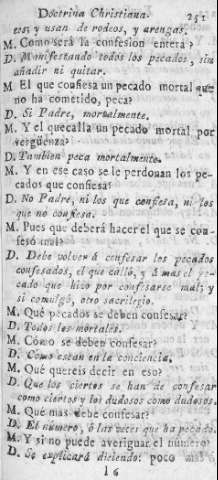 Doctrina Christiana. 251
tos, y usan de rodeos, y arengas.
M. Como será la confesion entera?
D. Manifestando todos los pecados, sin
añadir ni quitar.
M El que confiesa un pecado mortal que
no ha cometido, peca?
D. Si Padre, mortalmente.
M. Y el que calla un pecado mortal por
verguenza?
D. Tambien peca mortalmente.
M. Y en ese caso se le perdonan los pe-
cados que confiesa?
D. No Padre, ni los que confiesa, ni los
que no confiesa.
M. Pues que deberá hacer el que se con-
fesó mal?
D. Debe volver á confesar los pecados
confesados, el que calló, y á mas el pe-
cado que hizo por confesarse mal; y
si comulgó, otro sacrilegio.
M. Qué pecados se deben confesar?
D. Todos los mortales.
M. Cómo se deben confesar?
D. Como estan en la conciencia.
M. Qué quereis decir en eso?
D. Que los ciertos se han de confesar
como ciertos y los dudosos como dudosos.
M. Qué mas debe confesar?
D. El número, ó las veces que ha pecado.
M. Y si no puede averiguar el número?
D. Se explicará diciendo: poco mas ó
16